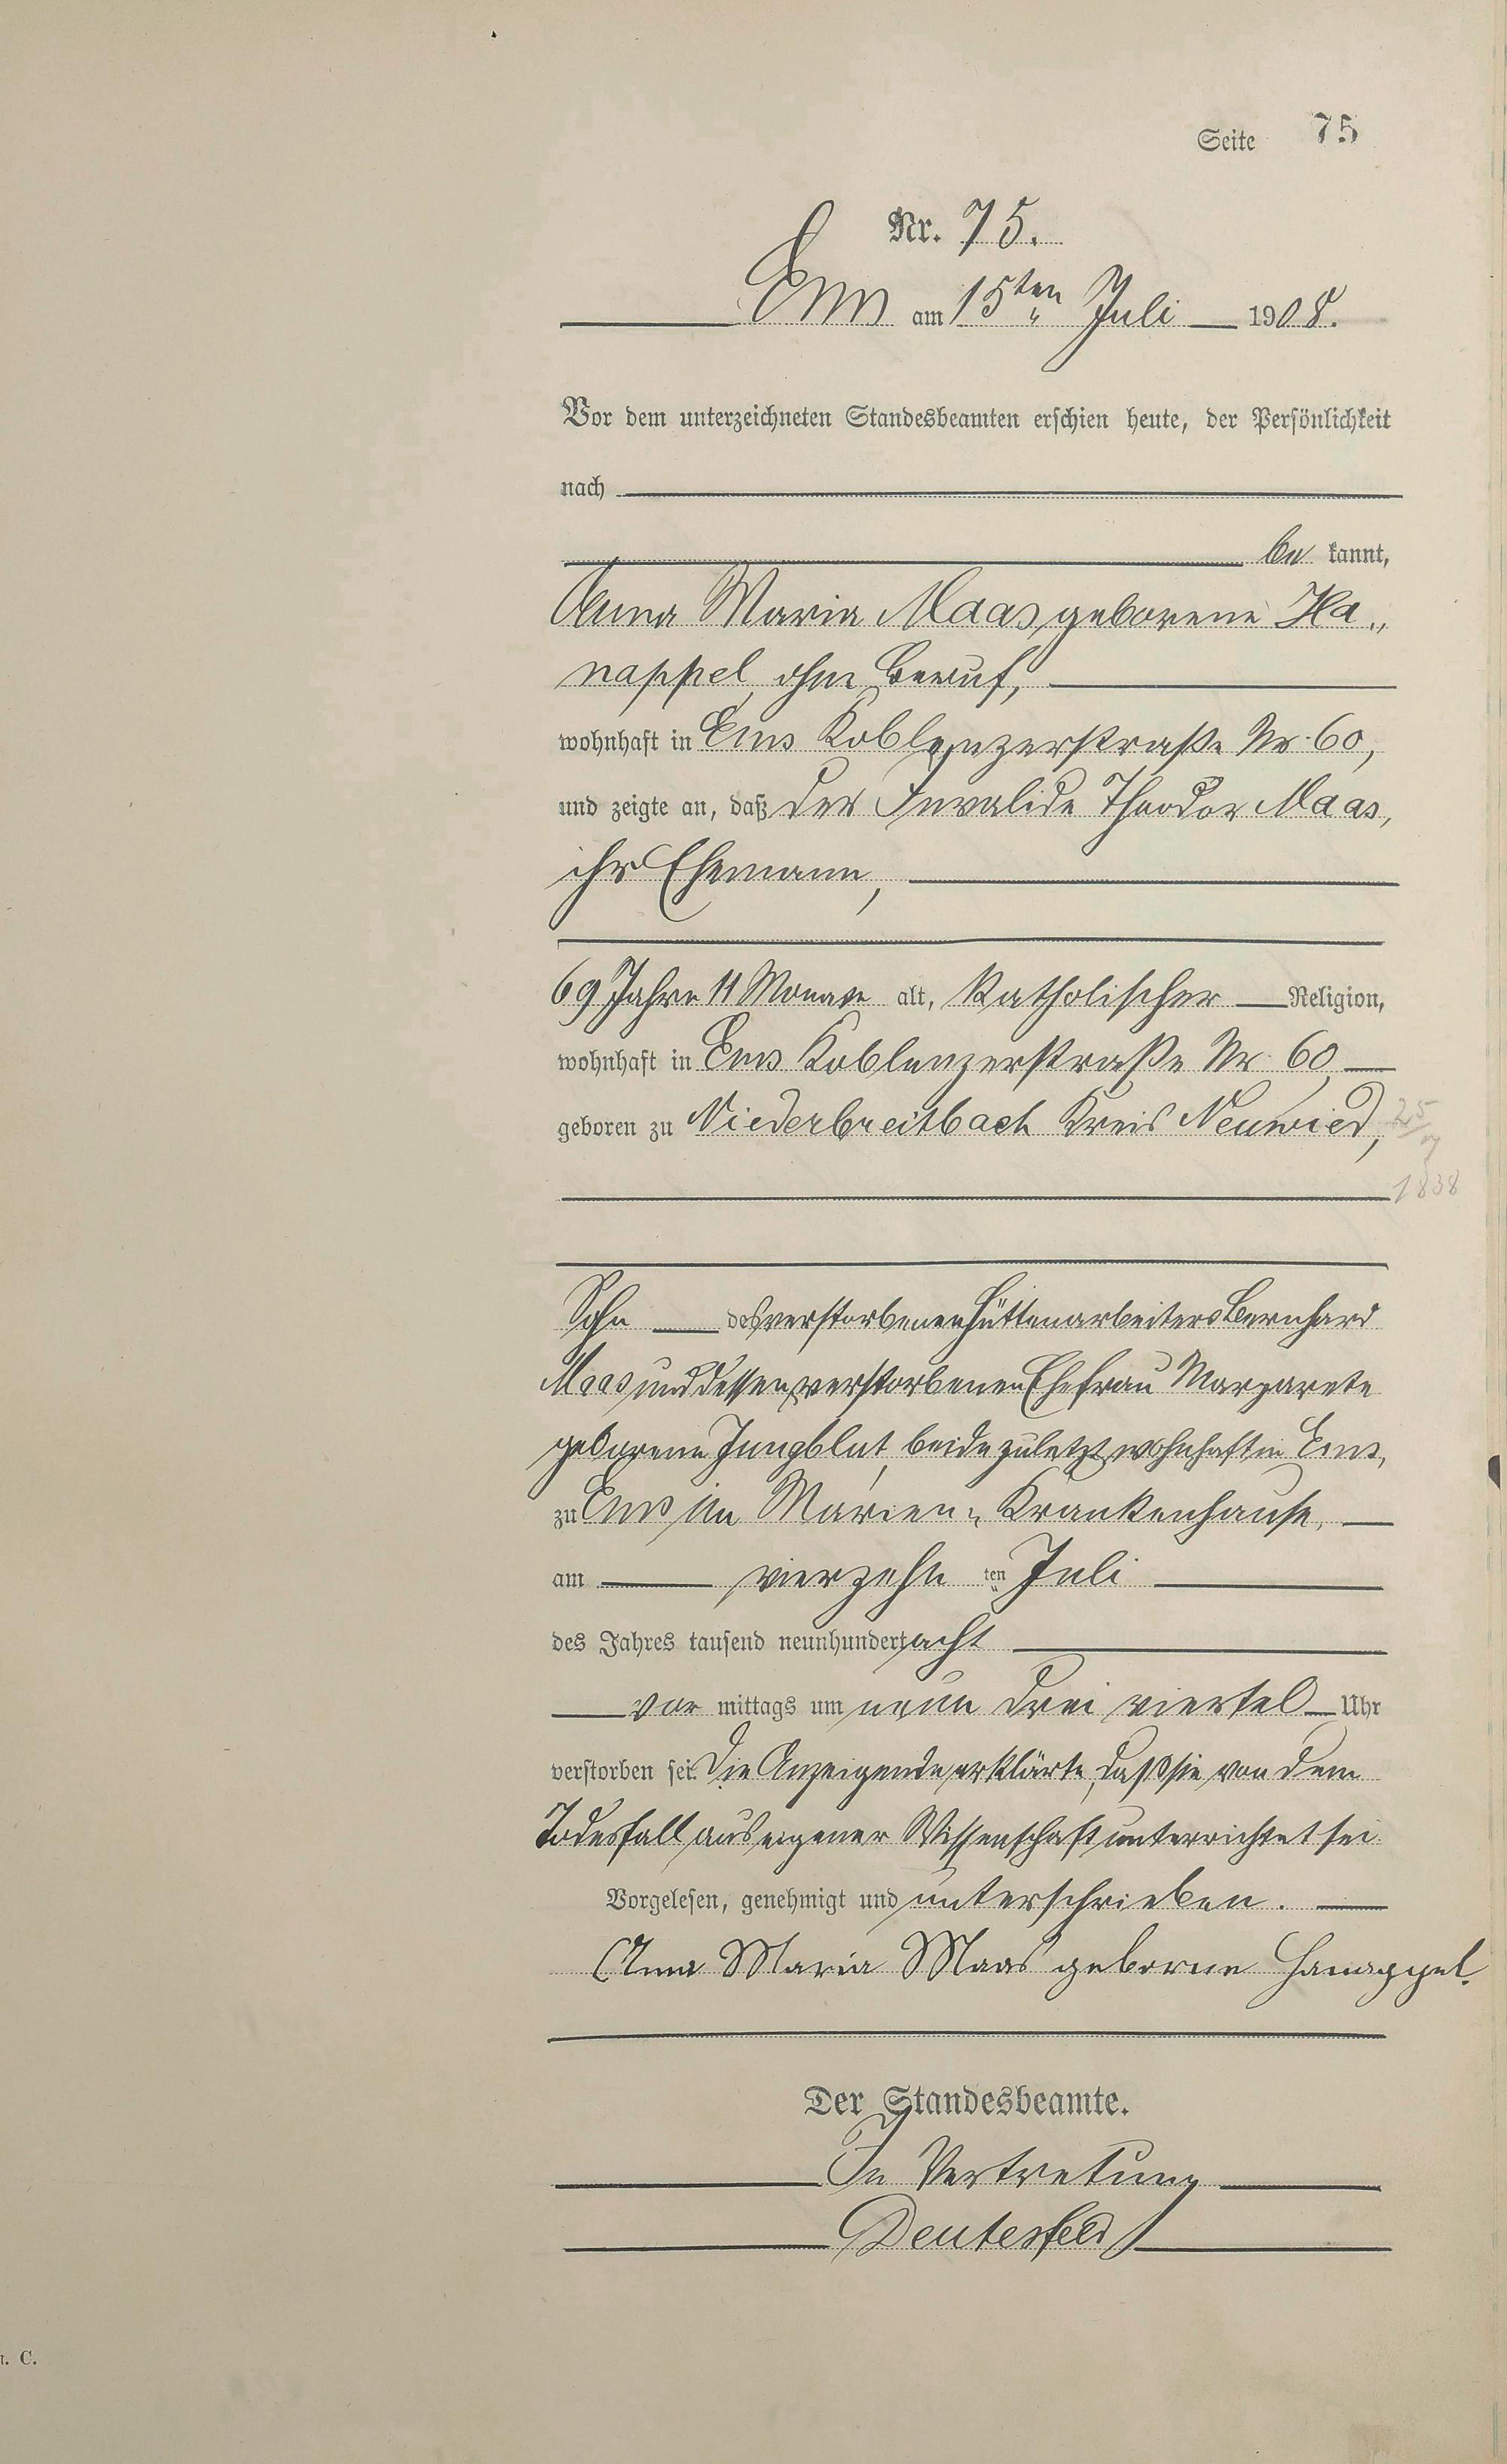 Seite 75
Nr. 75.
Ems am 15ten Juli 1908.
Vor dem unterzeichneten Standesbeamten erschien heute, der Persönlichkeit
nach
be kannt,
Anna Maria Maas geborene Ha„
nappel, ohne Beruf,
wohnhaft in Ems Koblenzerstraße Nr. 60,
und zeigte an, daß der Invalide Theodor Maas,
ihr Ehemann,
69 Jahre 11 Monate alt, katholischer Religion,
wohnhaft in Ems Koblenzerstraße Nr. 60,
geboren zu Niederbreitbach Kreis Neuwied,
1838
Sohn des verstorbenen Hüttenarbeiters Bernhard
Maas und dessen verstorbenen Ehefrau Margarete
geborene Jungblut, beide zuletzt wohnhaft in Ems,
zu Ems im Marien„ Krankenhause,
am vierzehn ten Juli
des Jahres tausend neunhundert acht
vor mittags um neun drei viertel Uhr
verstorben sei. Die Anzeigende erklärte, daß sie von dem
Todesfall aus eigener Wissenschaft unterrichtet sei.
Vorgelesen, genehmigt und unterschrieben.
Anna Maria Maas geborne Hanappel.
Der Standesbeamte.
In Vertretung
Deutesfeld
. C.